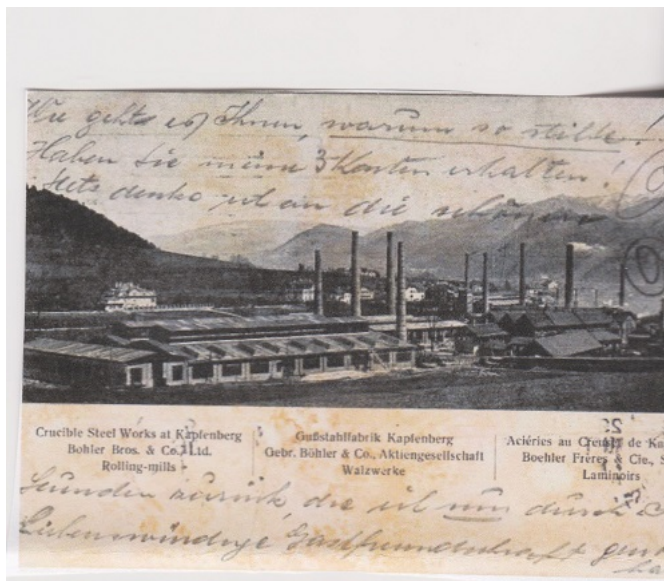 Wie geht es Ihnen, warum so stille!
Haben Sie meine 3 Karten erhalten!
Stets denke ich an die schönen
Crucible Steel Works at Kapfenberg
Bohler Bros. & Co. Ltd.
Rolling-mills
Gußstahlfabrik Kapfenberg
Gebr. Böhler & Co., Aktiengesellschaft
Walzwerke
Aciéries au Creuset de Ka
Boehler Frères & Cie., S
Laminoirs
Stunden zurück, die ich nur durch
Liebenswürdige Gastfreundschaft